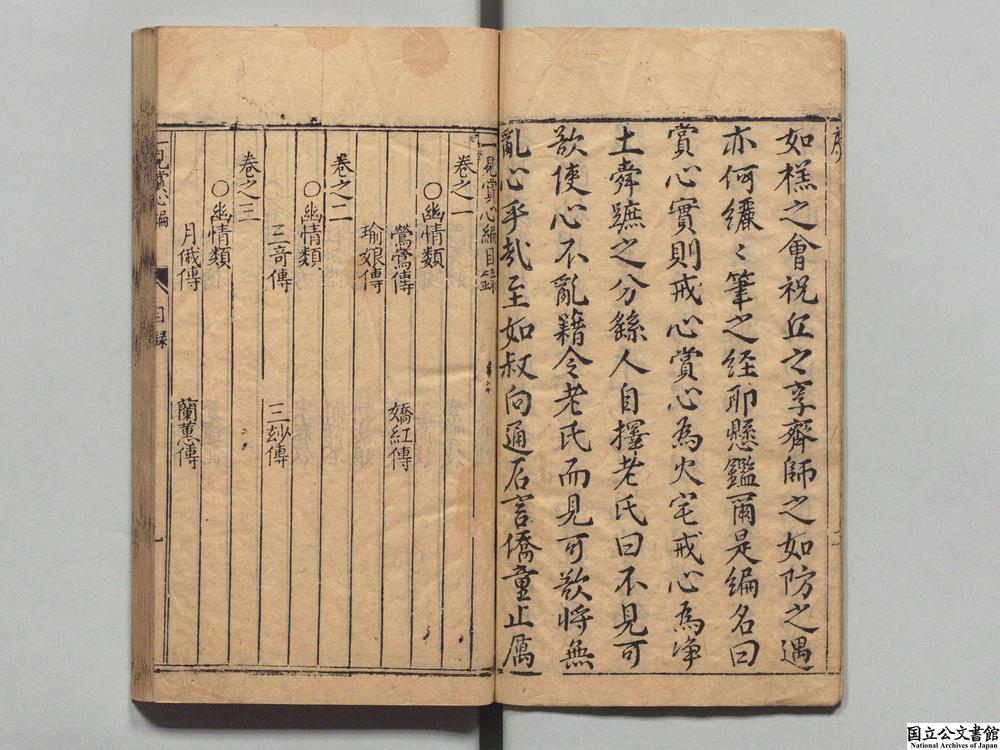 序
如榚之會祝丘之享齊師之如防之遇
亦何纚〻筆之經耶懸鑑爾是編名曰
賞心實則戒心賞心為火宅戒心為净
土舜蹠之分繇人自擇老氏曰不見可
欲使心不亂籍令老氏而見可欲將無
亂心乎哉至如叔向通石言僑童止厲
一見賞心編目錄
卷之一
○幽情類
鶯鶯傳 嬌紅傳
瑜娘傳
卷之二
○幽情類
三奇傳 三玅傳
卷之三
○幽情類
月俄傳 蘭蕙傳
一見賞心編 目録
国立公文書館
National Archives of Japan